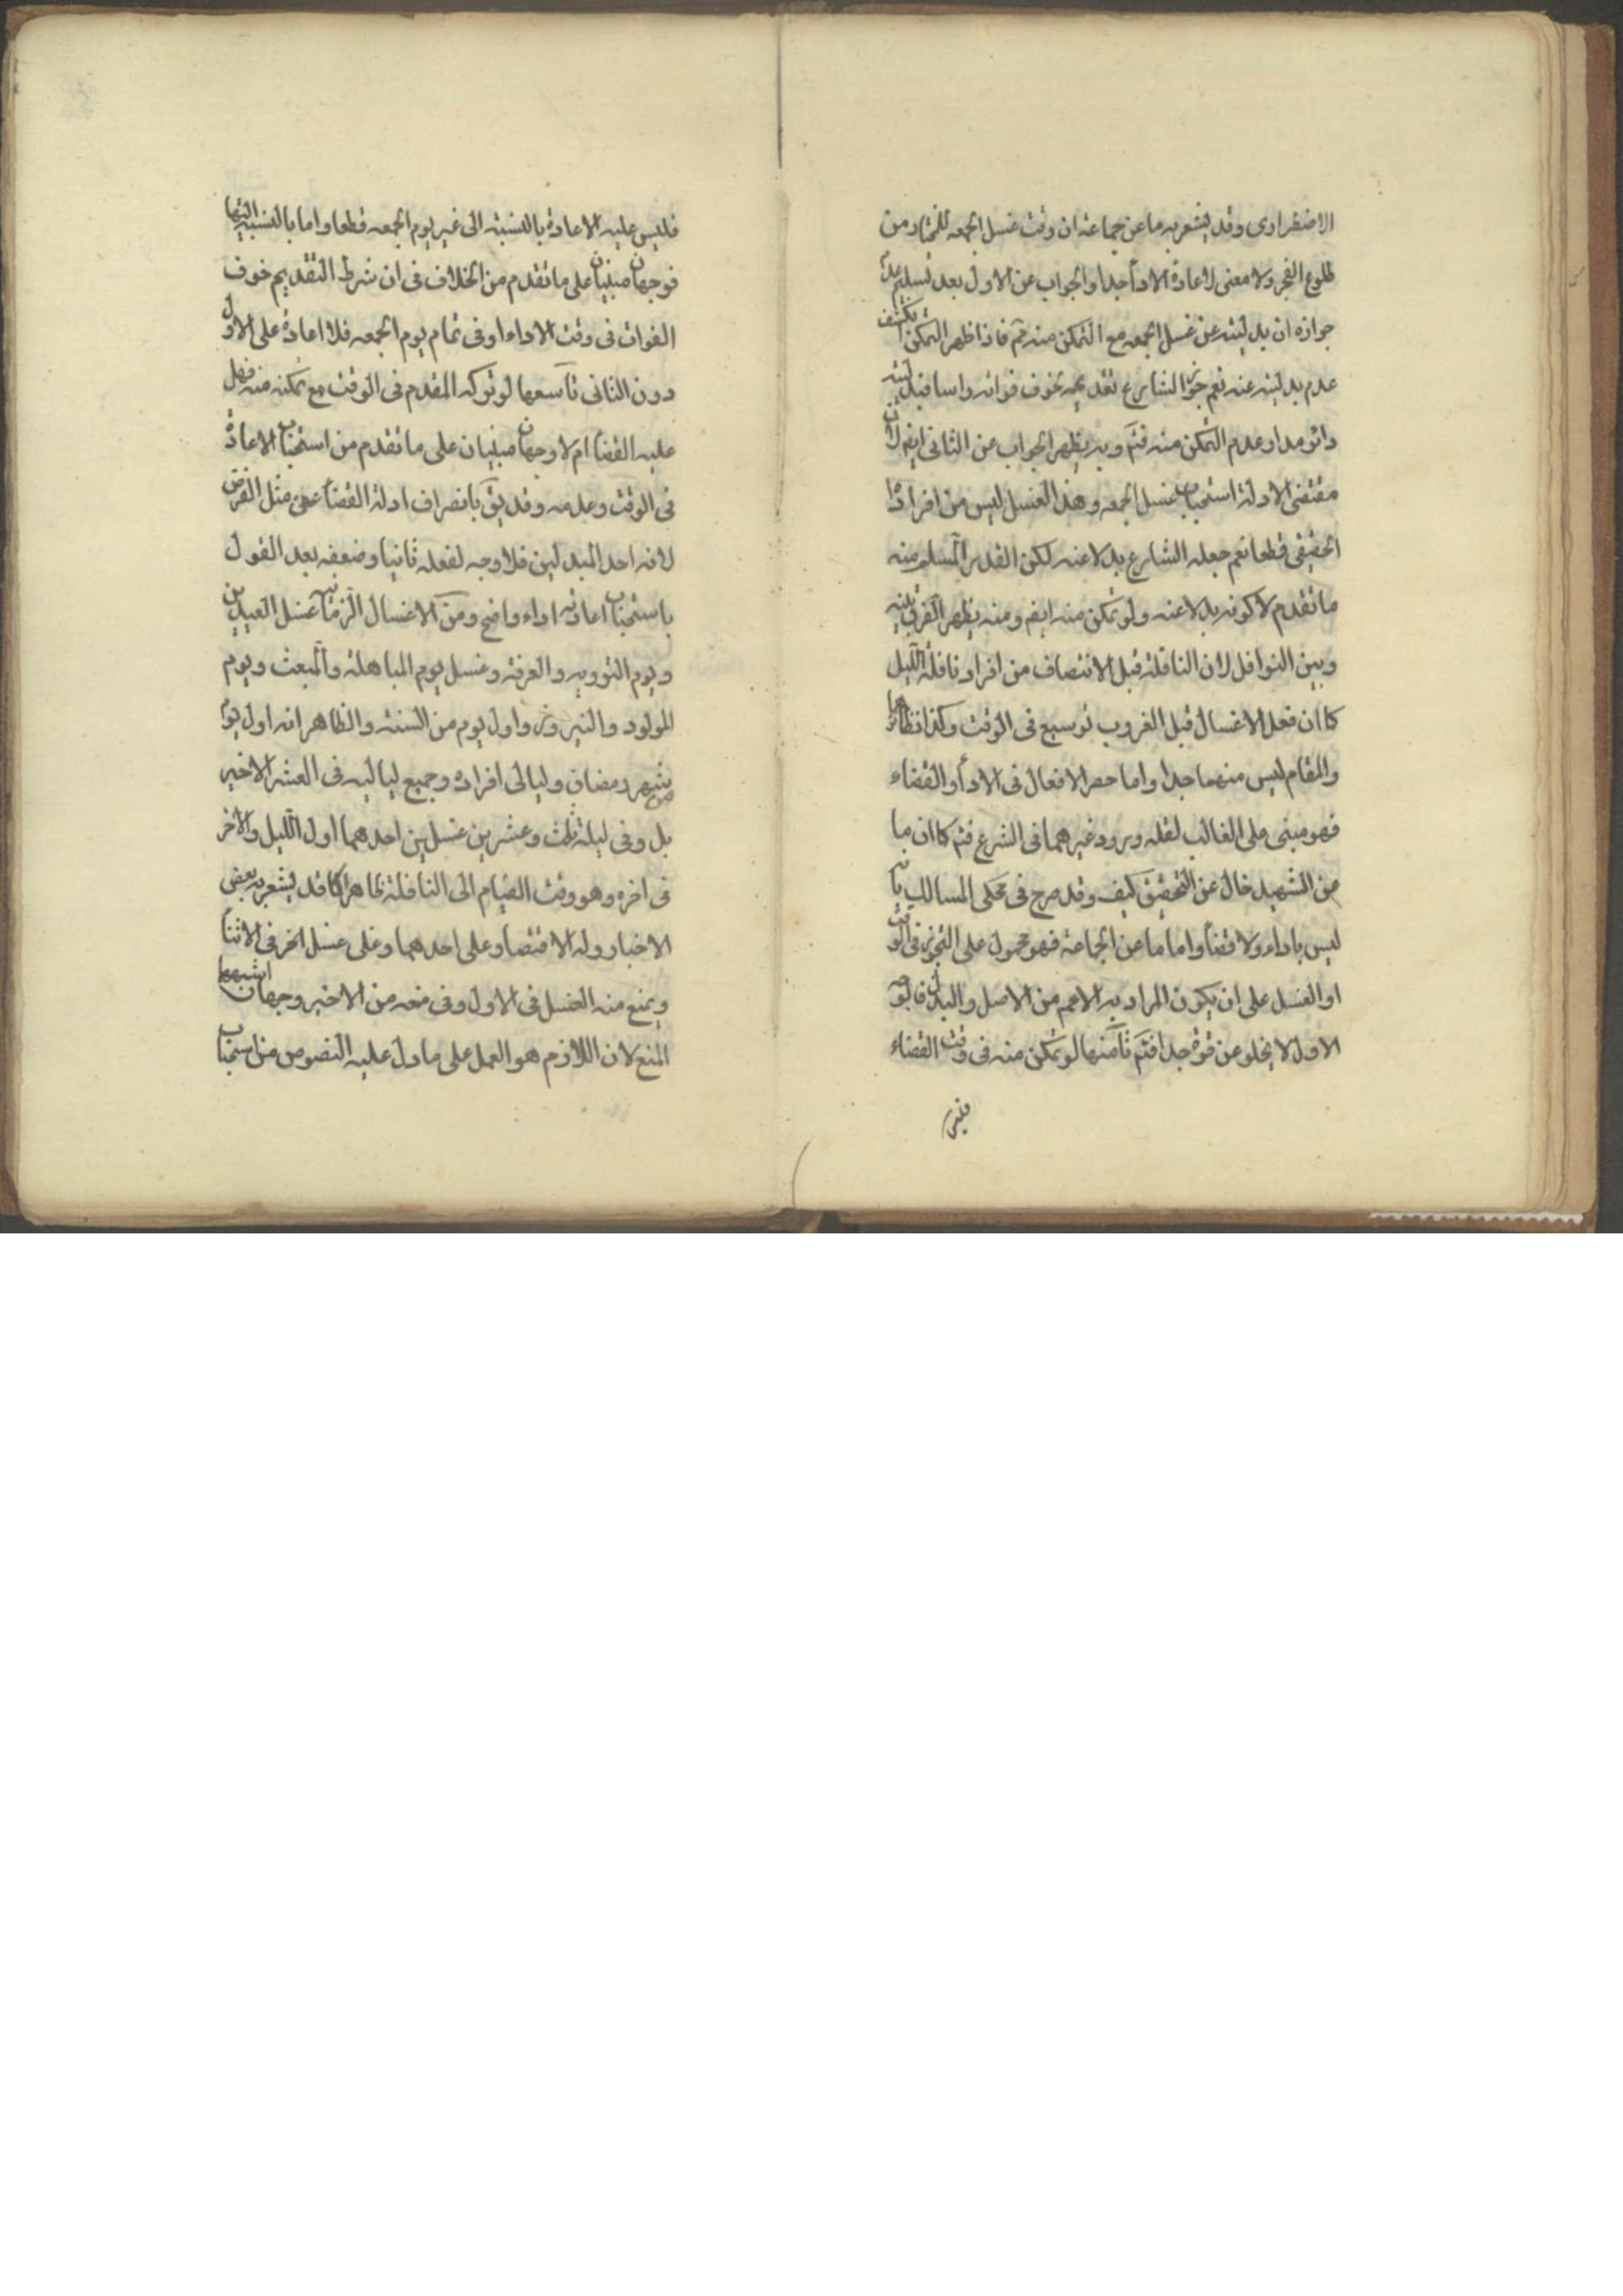 الاضطراری وقد یشعر به ما عن جماعة ان وقت غسل الجمعه للمختار من
طلوع الفجر ولا معنی لاعادة الاداء جدا والجواب عن الاول بعد تسلیم عدم
جوازه ان بدلیته عن غسل الجمعه مع التمکن منه ثم فاذا ظهر التمکن یکشف
عدم بدلیته عنه نعم جوز الشارع تقدیمه بخوف فواته واسا فبدلیته
دائر مدار عدم التمکن منه فثم وبه یظهر الجواب عن الثانی ایضا لان
مقتضی الادلة استحباب غسل الجمعه وهذا الغسل لیس من افراده
الحقیقی قطعا نعم جعله الشارع بدلا عنه لکن القدر المسلم منه
ما تقدم لا کونه بدلا عنه ولو تمکن منه ایضا ومنه یظهر الفرق بینه
وبین النوافل لان النافلة قبل الانتصاف من افراد نافلة اللیل
کما ان فعل الاغسال قبل الغروب توسیع فی الوقت وکذا نظائرها
والمقام لیس منهما جدا واما حصر الافعال فی الاداء والقضاء
فهو مبنی علی الغالب لقلة ورود غیرهما فی الشرع فثم کما ان ما
من الشهید خال عن التحقیق کیف وقد صرح فی محکی المسالک بانه
لیس باداء ولا قضاء واما ما عن الجماعة فهو محمول علی التجوز فی الوقت
او الغسل علی ان یکون المراد به الاعم من الاصل والبدل فالوجه
الاول لا یخلو عن قوة جدا فثم ثامنها لو تمکن منه فی وقت القضاء
فلیس
فلیس علیه الاعادة بالنسبة الی غیر یوم الجمعه قطعا واما بالنسبة الیها
فوجهان مبنیان علی ما تقدم من الخلاف فی ان شرط التقدیم خوف
الفوات فی وقت الاداء او فی تمام یوم الجمعه فلا اعادة علی الاول
دون الثانی تاسعها لو ترکه المقدم فی الوقت مع تمکنه منه فهل
علیه القضاء ام لا وجهان مبنیان علی ما تقدم من استحباب الاعادة
فی الوقت وعدمه وقد یق بانصراف ادلة القضاء عن مثل الفرض
لانه احد المبدلین فلا وجه لفعله ثانیا وضعفه بعد القول
باستحباب اعادته اداء واضح ومن الاغسال الزمانیه غسل العیدین
ویوم الترویه والعرفة وغسل یوم المباهلة والمبعث ویوم
المولود والنیروز واول یوم من السنة والظاهر انه اول یوم
شهر رمضان ولیالی افراده وجمیع لیالیه فی العشر الاخیر
بل وفی لیلة ثلث وعشرین غسلین احدهما اول اللیل والاخر
فی اخره وهو وقت القیام الی النافلة ظاهرا کما قد یشعر به بعض
الاخبار وله الاقتصار علی احدهما وعلی غسل اخر فی الاثناء
ویمنع منه الغسل فی الاول وفی منعه من الاخیر وجهان اشبهها
المنع لان اللازم هو العمل علی ما دل علیه النصوص من استحباب